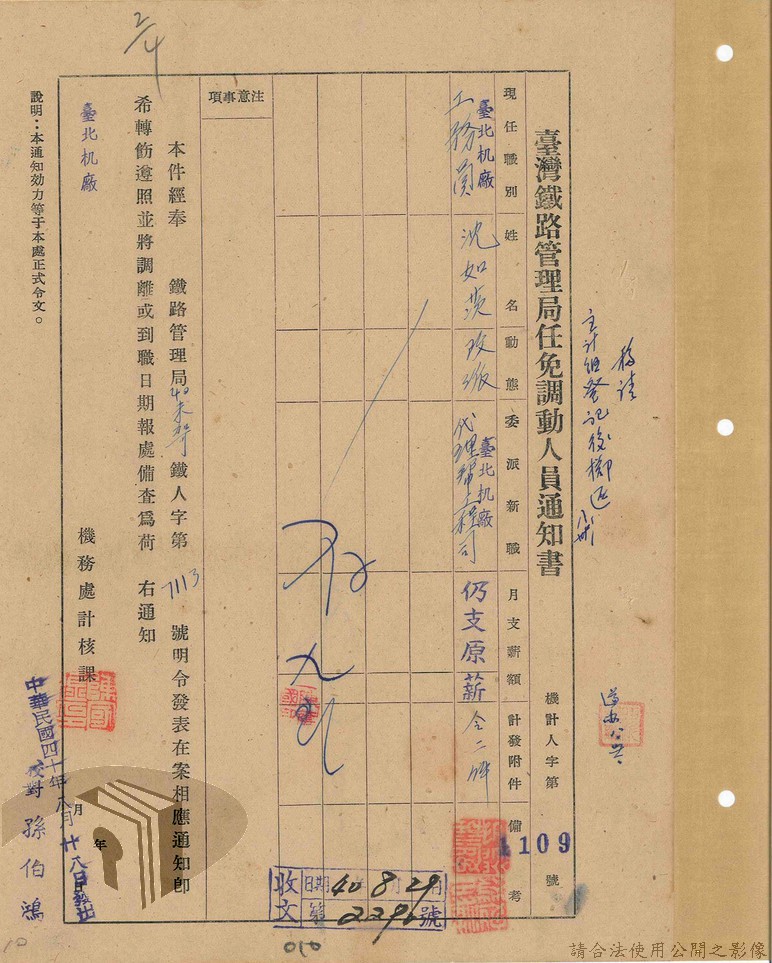 2/4
移請
主計組登記後擲還
遵辦
臺灣鐵路管理局任免調動人員通知書
機計人字第 1109 號
現任職別
姓名
動態
委派新職
月支薪額
計發附件
備考
臺北机廠
工務員
改派
臺北机廠
代理幫工程司
仍支原薪
令二件
注意事項
本件經奉 鐵路管理局 鐵人字第 7113 號明令發表在案相應通知卽
希轉飭遵照並將調離或到職日期報處備查爲荷 右通知
臺北机廠
機務處計核課
中華民國四十年八月廿八日發出
月
年
日
校對 孫伯鴻
說明：本通知効力等于本處正式令文。
收文
日期 40 8月29日
第 229 號
010
10
請合法使用公開之影像